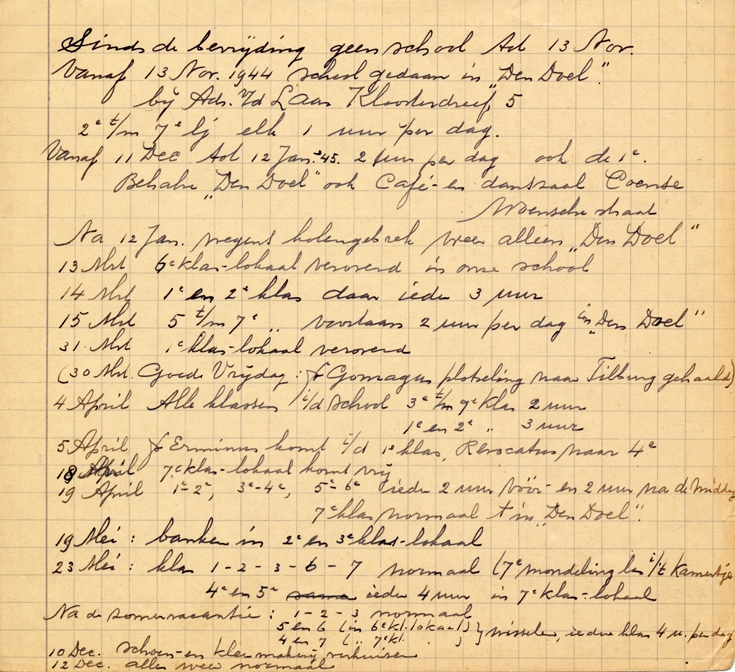 Sinds de bevrijding geen school tot 13 Nov.
Vanaf 13 Nov. 1944 school gedaan in "Den Doel".
bij Ads. v/d Laar Kloosterdreef 5
2e t/m 7e lj elk 1 uur per dag.
Vanaf 11 Dec tot 12 Jan. '45. 2 uur per dag ook de 1e.
Behalve "Den Doel" ook Café- en danszaal Coense
Woensche straat
Na 12 Jan. wegens kolengebrek weer alleen "Den Doel"
13 Mrt 6e klas-lokaal veroverd in onze school
14 Mrt 1e en 2e klas daar ieder 3 uur
15 Mrt 5 t/m 7e " voortaan 2 uur per dag in "Den Doel"
31 Mrt 1e klas-lokaal veroverd
(30 Mrt. Goede Vrijdag: fr Gomagus plotseling naar Tilburg gehaald)
4 April Alle klassen i/d school 3e t/m 7e klas 2 uur
1e en 2e " 3 uur
5 April fr Erminus komt i/d 1e klas, Revocatus naar 4e
18 April 7e klas-lokaal komt vrij
19 April 1e-2e, 3e-4e, 5e-6e ieder 2 uur vóór- en 2 uur na de middag
7e klas normaal + in "Den Doel".
19 Mei: banken in 2e en 3e klas-lokaal
23 Mei: klas 1-2-3-6-7 normaal (7e mondeling les i/t kamertje
4e en 5e ieder 4 uur in 7e klas-lokaal
Na de zomervacantie: 1-2-3 normaal
5 en 6 (in 6e kl. lokaal) } wisselen, iedere klas 4 u. per dag
4 en 7 ( " 7e kl. " )
10 Dec. schoen- en kleermakerij verhuizen
12 Dec. alles weer normaal